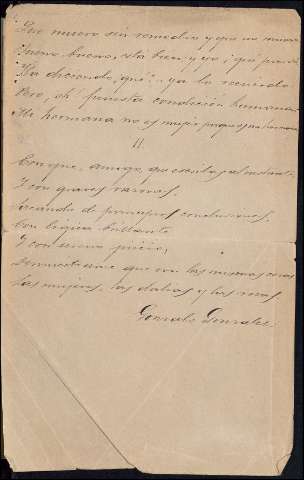 Que muero sin remedio y que no muero
Bueno bueno, está bien; y yo ¡qué
Iba diciendo, qué? ya lo recuerdo
Pero, oh! funesta condición humana
Mi hermana no es mujer porque es mi hermana
II
Conque, amigo, que exista
Y con graves razones,
Sacando de principios conclusiones,
Con lógica brillante
Y con sereno juicio,
Demuéstrame que son las mismas cosas
Las mujeres, las dalias y las rosas
Gonzalo González